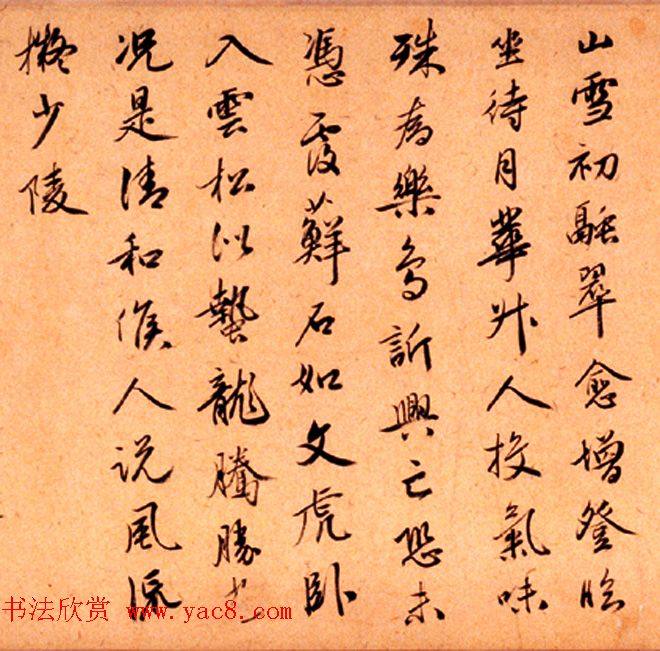 山雪初融翠愈增登臨
坐待月華升人投氣味
殊為樂鳥訴興亡恐未
憑霞蘚石如文虎臥
入雲松似蟄龍騰勝遊
況是清和候人说風流
擬少陵
书法欣赏 www.yac8.com